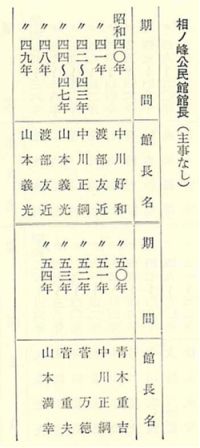 相ノ峰公民館館長（主事なし）
期間　館長名
昭和四〇年　中川好和
〃四一年　渡部友近
〃四二〜四三年　中川正綱
〃四四〜四七年　山本義光
〃四八年　渡部友近
〃四九年　山本義光
期間　館長名
〃五〇年　青木重吉
〃五一年　中川正綱
〃五二年　菅万徳
〃五三年　菅重夫
〃五四年　山本満幸